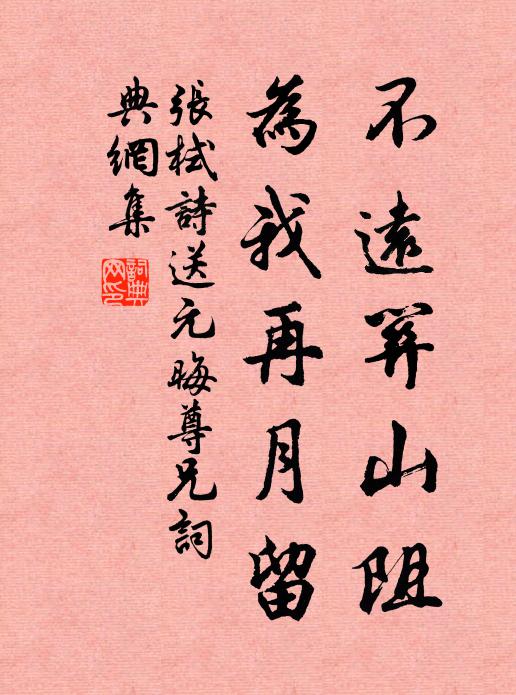 不遠關山阻
為我再月留
張栻詩送元晦尊兄詞
典網集
詞典网印